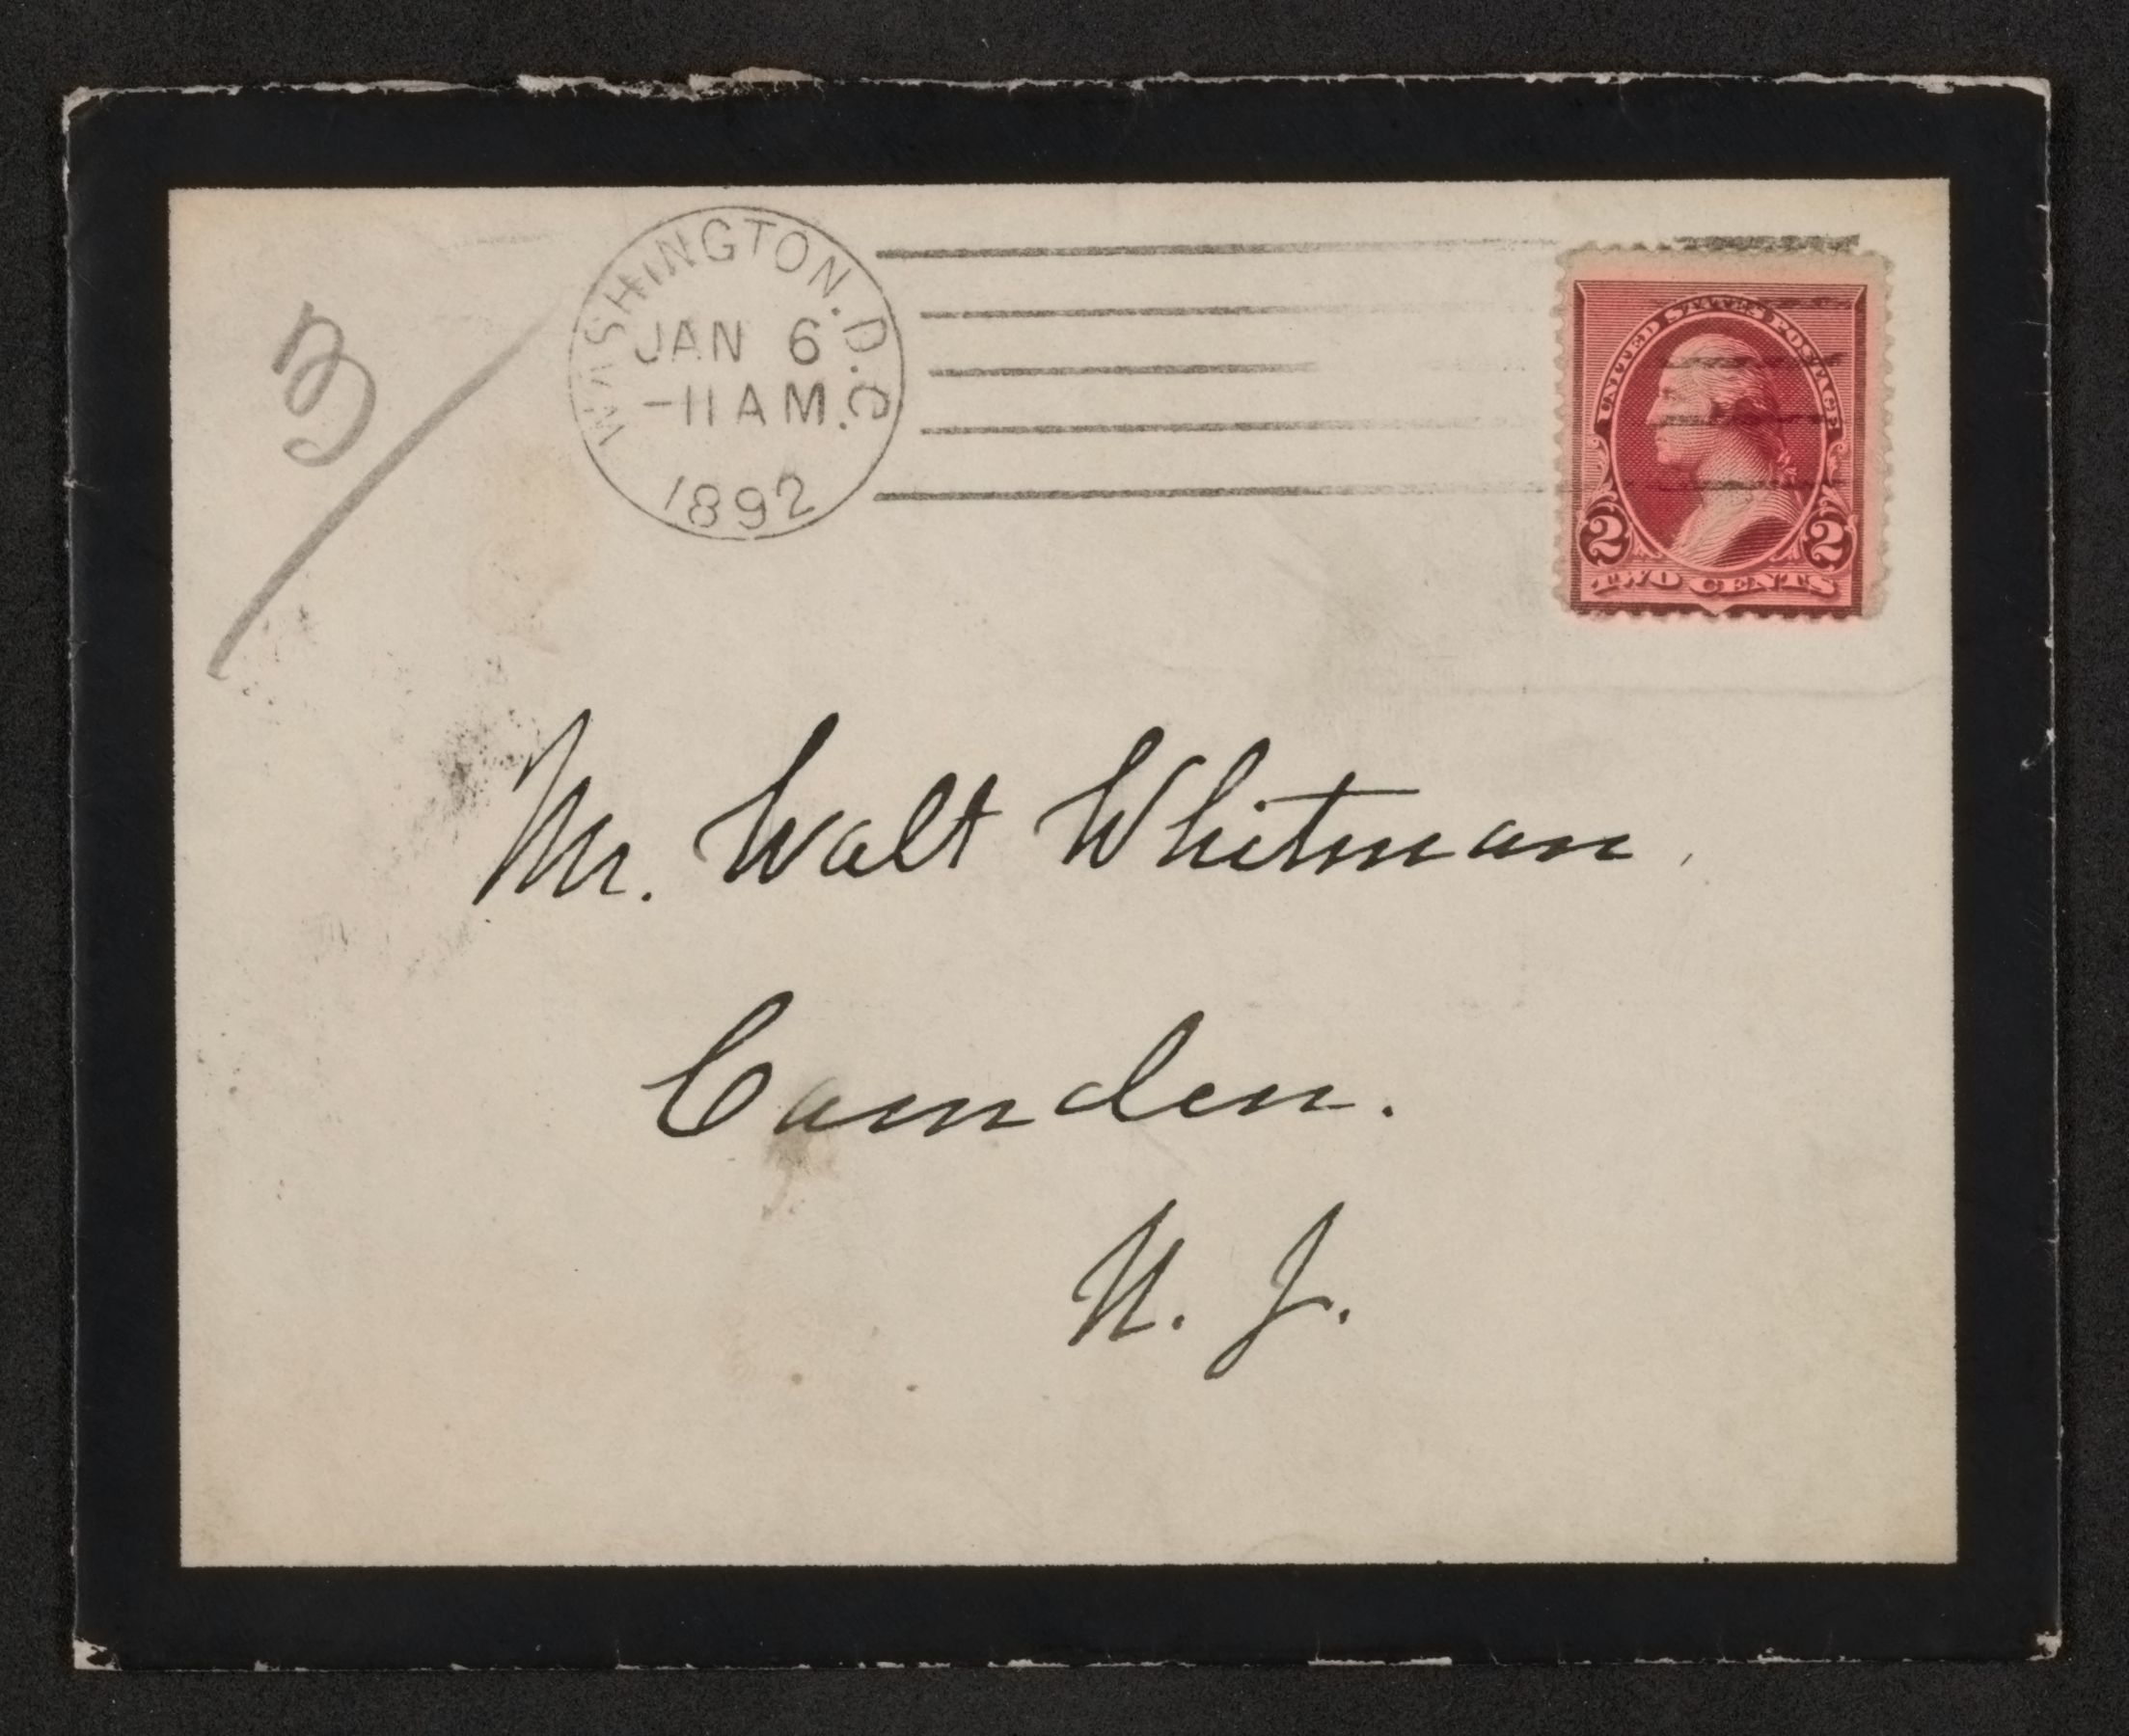 3/
WASHINGTON. D.C.
JAN 6
-11 AM.
1892
UNITED STATES POSTAGE
2 2
TWO CENTS
Mr. Walt Whitman.
Camden.
N. J.